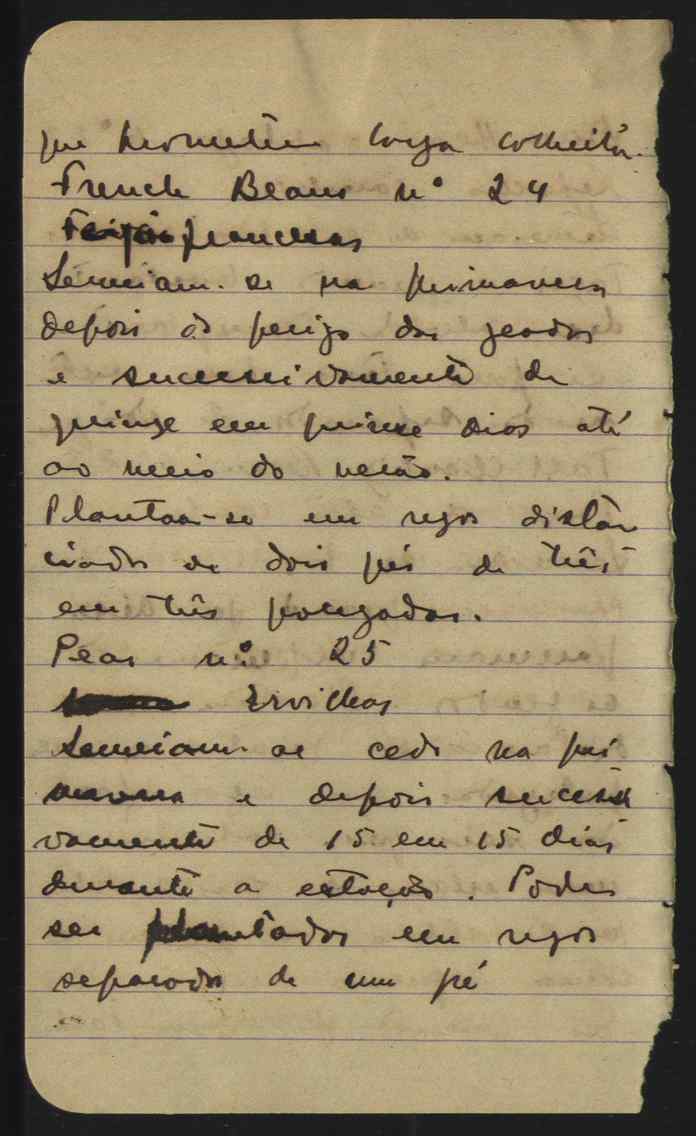 que promettem larga colheita.
French Beans nº 24
Feijão francesas
Semeiam-se na primavera
depois do perigo das geadas
e sucessivamente de
quinze em quinze dias até
ao meio do verão.
Plantam-se em regos distan
ciados de dois pés de três
em três polegadas.
Peas nº 25
Ervilhas
Semeiam-se cedo na pri
mavera e depois sucessi
vamente de 15 em 15 dias
durante a estação. Podem
ser plantadas em regos
separados de um pé